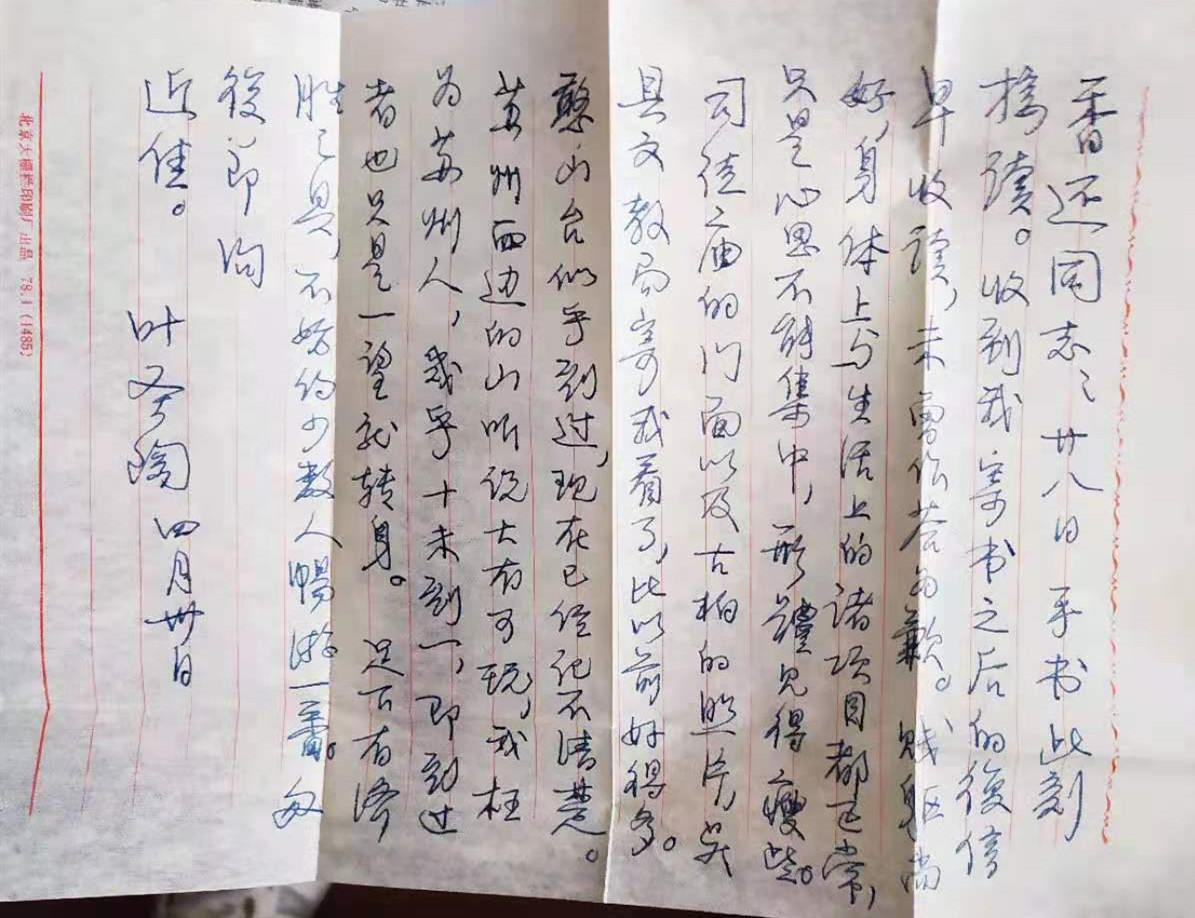 香还同志：廿八日手书此刻
接读。收到我寄书之后的復信
早收读，未曾作答为歉。贱躯尚
好，身体上与生活上的诸项目都正常，
只是心思不能集中，形體见得瘦些。
司徒庙的门面以及古柏的照片，吴
县文教局寄我看了，比以前好得多。
憨山台似乎到过，现在已经记不清楚。
苏州西边的山听说大有可玩，我枉
为苏州人，幾乎十未到一，即到过
者也只是一望就转身。足下有济
胜之具，不妨约少数人暢游一番。匆
後即询
近佳。
叶圣陶 四月卅日
北京大栅栏印刷厂出品 78.1 (1485)